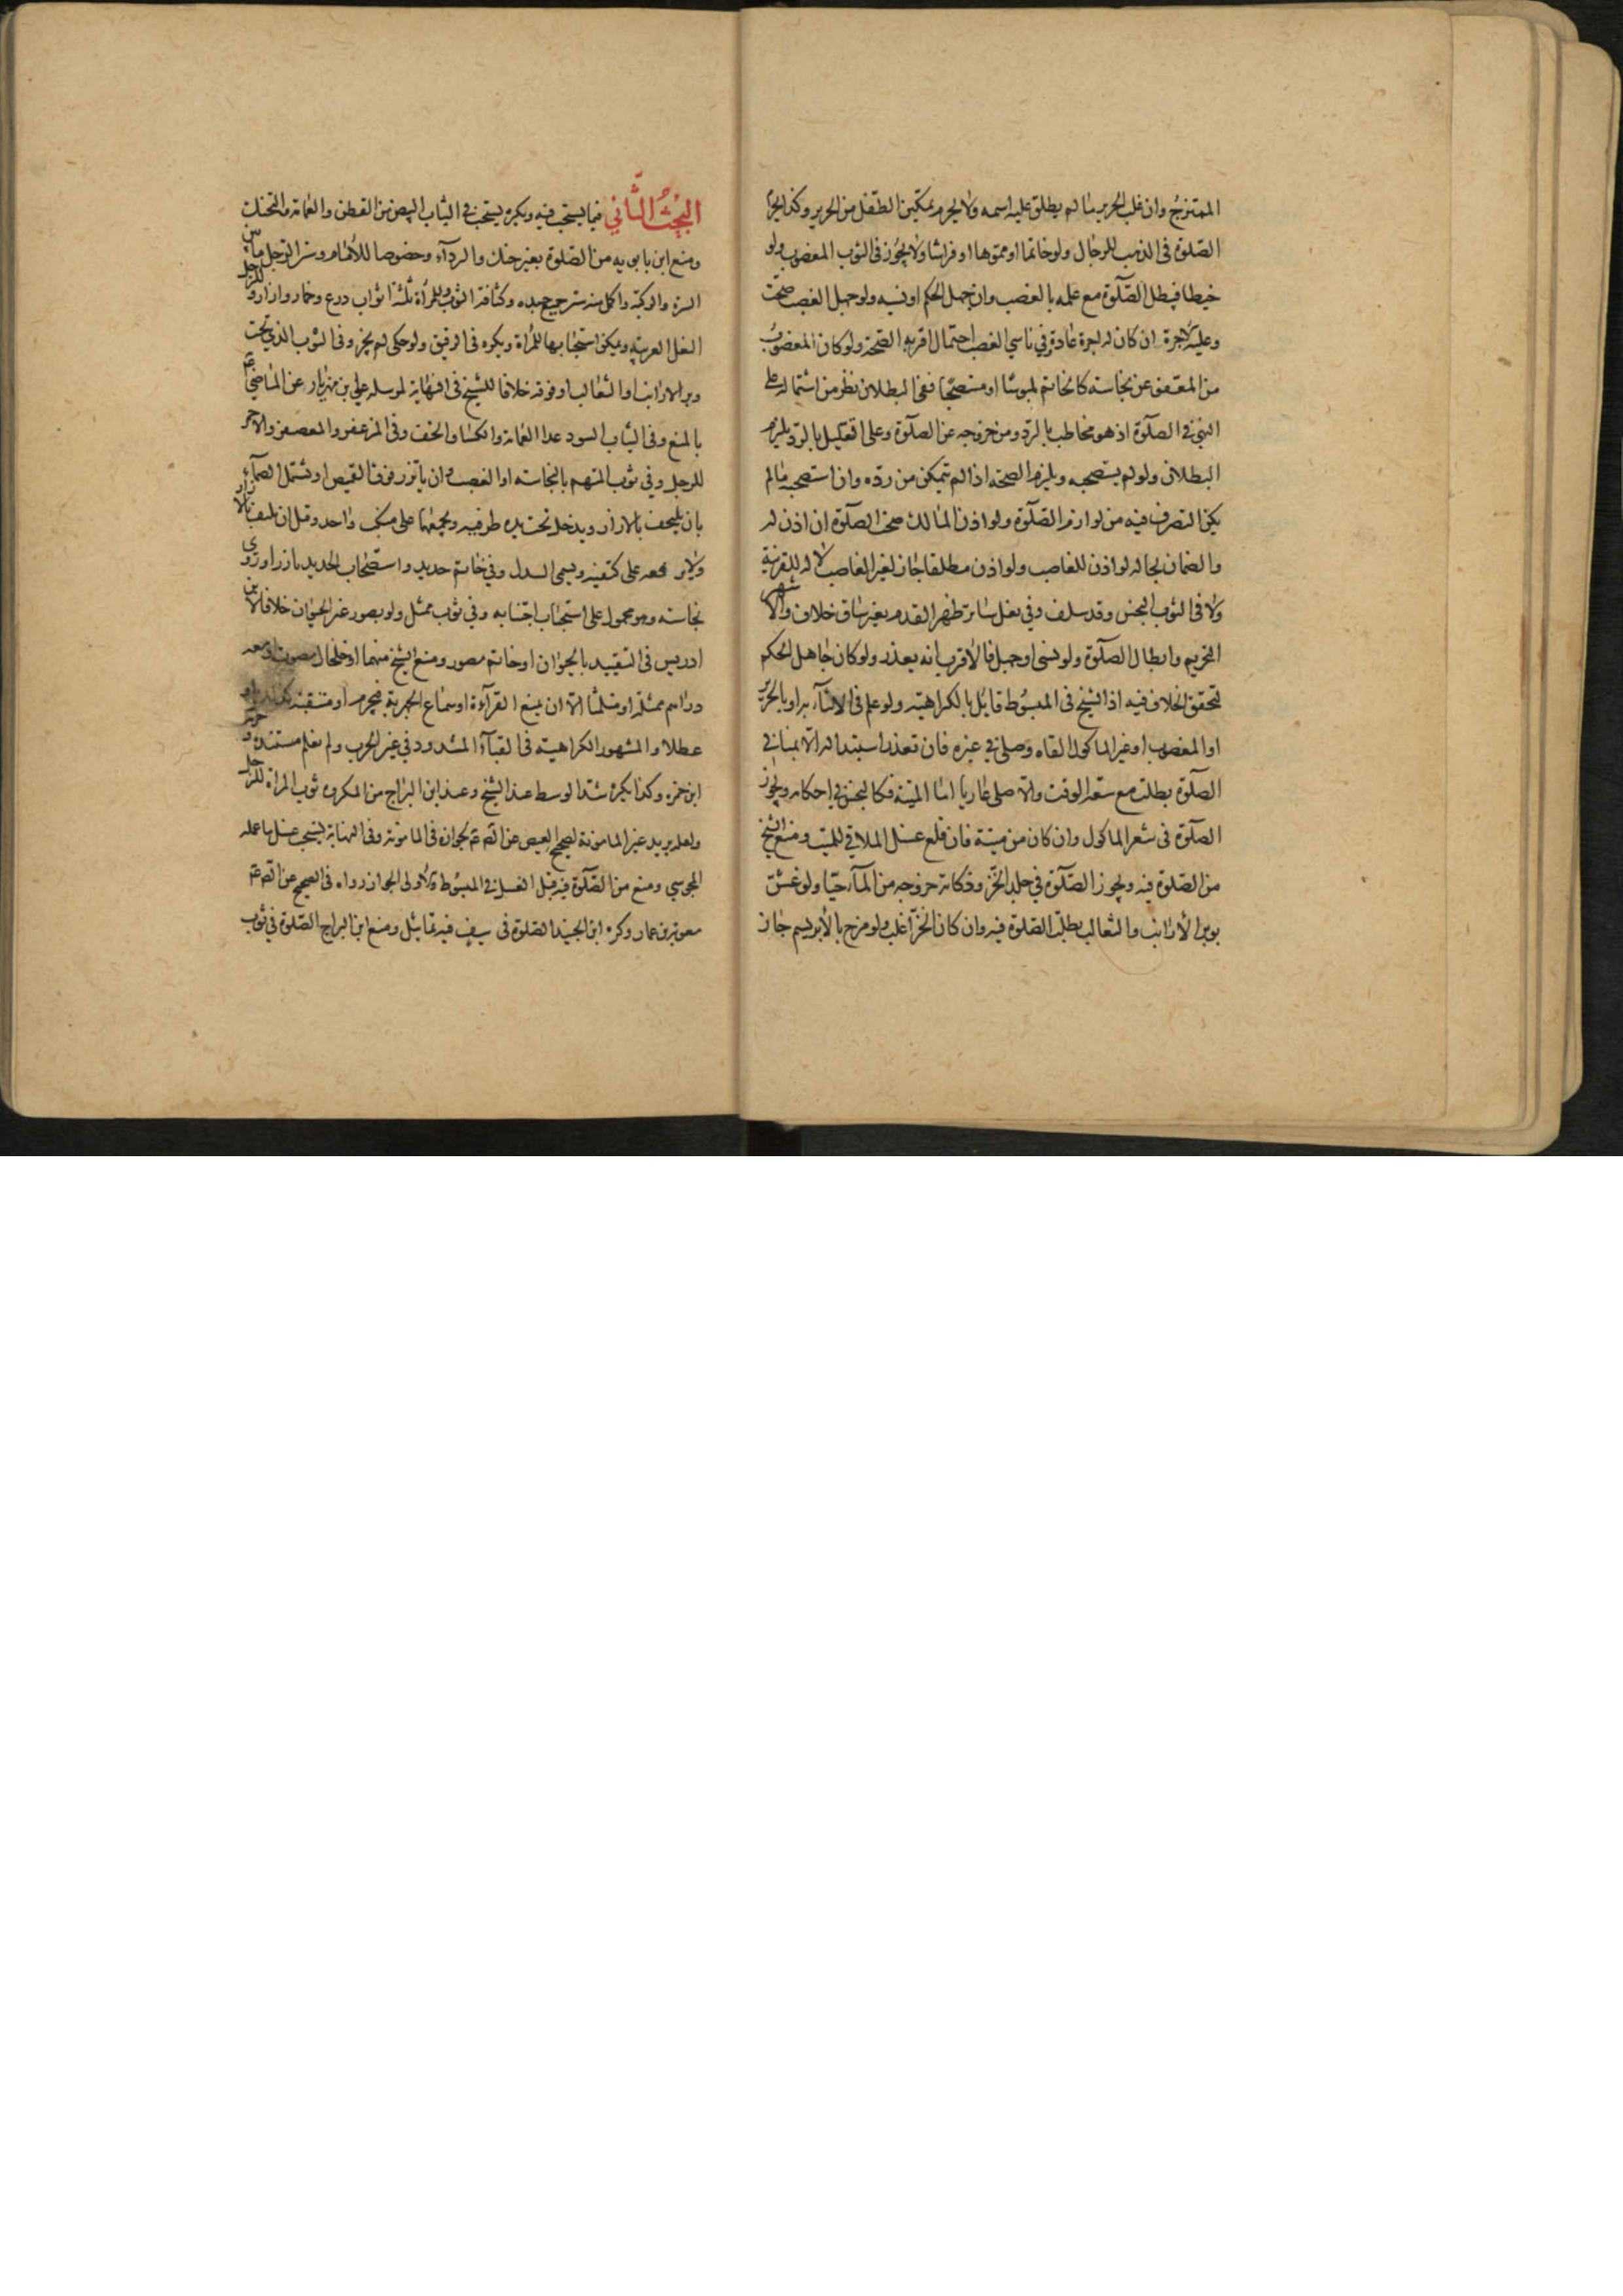 الممتزج وان غلب الحرير ما لم يطلق عليه اسمه ولا يحرم تمكين الطفل من الحرير وكذا يحرم
الصلوة فى الذهب للرجال ولو خاتما او مموها او فراشا ولا يجوز فى الثوب المغصوب ولو
خيطا فيبطل الصلوة مع علمه بالغصب وان جهل الحكم او نسيه ولو جهل الغصب صحت
وعليه الاجرة ان كان له اجرة عادة وفي ناسي الغصب احتمال اقربه الصحة ولو كان المغصوب
من المعفو عن نجاسته كالخاتم ملبوسا او مستصحبا ففى البطلان نظر من اشتماله على
النهي في الصلوة اذ هو مخاطب بالرد ومن خروجه عن الصلوة وعلى التعليل بالرد يلزم
البطلان ولو لم يستصحبه ويلزم الصحة اذا لم يتمكن من رده وان استصحبه ما لم
يكن التصرف فيه من لوازم الصلوة ولو اذن المالك صحت الصلوة ان اذن له
والضمان بحاله لو اذن للغاصب ولو اذن مطلقا جاز لغير الغاصب لا له للقرينة
ولا فى الثوب النجس وقد سلف وفي نعل ساتر ظهر القدم بغير ساق خلاف والاشهر
التحريم وابطال الصلوة ولو نسى او جهل فالاقرب انه يعذر ولو كان جاهل الحكم
لتحقق الخلاف فيه اذ الشيخ فى المبسوط قايل بالكراهية ولو علم فى الاثناء به او بالحرير
او المغصوب او غير الماكول القاه وصلى في غيره فان تعذر استبداله الا بمناف
الصلوة بطلت مع سعة الوقت والا صلى عاريا اما الميتة فكالنجس في احكامه ويجوز
الصلوة فى شعر الماكول وان كان من ميتة فان قلع غسل الملاقي للميت ومنع الشيخ
من الصلوة فيه ويجوز الصلوة في جلد الخز وذكاته خروجه من الماء حيا ولو غش
بوبر الارانب والثعالب بطلت الصلوة فيه وان كان الخز اغلب ولو مزج بالابريسم جاز
البحث الثاني فيما يستحب فيه ويكره يستحب في الثياب البيض من القطن والعمامة والتحنك
ومنع ابن بابويه من الصلوة بغير حنك والرداء وخصوصا للامام وستر الرجل ما بين
السرة والركبة واكمل منه ستر جميع بدنه وكثافة الثوب وللمرأة ثلثة اثواب درع وخمار وازار وللرجل
النعل العربية ويمكن استحبابها للمرأة ويكره فى الرقيق ولو حكى لم يجز وفى الثوب الذي تحت
وبر الارانب او الثعالب او فوقه خلافا للشيخ فى النهاية لمرسلة علي بن مهزيار عن الماضي ع
بالمنع وفى الثياب السود عدا العمامة والكساء والخف وفى المزعفر والمعصفر والاحمر
للرجل وفي ثوب المتهم بالنجاسة او الغصب وان ياتزر فوق القميص او يشتمل الصماء
بان يلتحف بالازار ويدخل تحت يده طرفيه ويجمعهما على منكب واحد وقيل ان يلتف بالازار
ولا يرفعه على كتفيه ويسمى السدل وفي خاتم حديد واستصحاب الحديد بارزا وروي
نجاسته وهو محمول على استحباب اجتنابه وفي ثوب ممثل ولو بصور غير الحيوان خلافا لابن
ادريس فى التقييد بالحيوان او خاتم مصور ومنع الشيخ منهما او خلخال مصوت او معه
دراهم ممثلة او متلثما الا ان يمنع القرآءة او سماع الجهرية فيحرم او متنقبة كذلك او
عطلا والمشهور الكراهية فى القباء المشدود في غير الحرب ولم نعلم مستنده وحرمه
ابن حمزه وكذا يكره شد الوسط عند الشيخ وعند ابن البراج من المكروه ثوب المراة للرجل
ولعله يريد غير المامونة لصحيح العيص عن الص ع بجوازه فى المامونة وفى النهاية يستحب غسل ما عمله
المجوسي ومنع من الصلوة فيه قبل الغسل في المبسوط والاولى الجواز رواه فى الصحيح عن الص ع
معوية بن عمار وكره ابن الجنيد الصلوة فى سيف فيه تماثيل ومنع ابن البراج الصلوة في ثوب